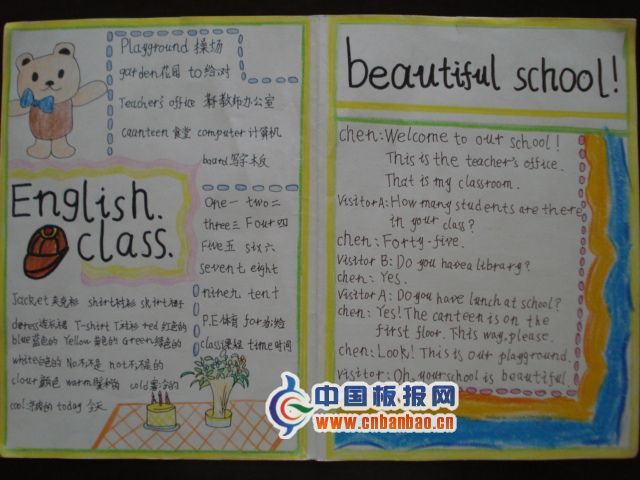 Playground 操场
garden花园 to给,对
Teacher's office 教师办公室
caanteen 食堂 computer 计算机
board写字木板
English.
class.
One一 two二
three三 Four四
Five五 six六
seven七 eight
nine九 ten十
P.E.体育 for为,给
class课,班 time时间
Jacket夹克衫 shirt衬衫 skirt裙子
dress连衣裙 T-shirt T恤衫 red 红色的
blue蓝色的 Yellow 黄色的 Green绿色的
white白色的 No不,不是 not不,不是的
clour颜色 warm暖和的 cold寒冷的
cool凉爽的 today 今天
beautiful school!
chen:Welcome to our school!
This is the teacher's office.
That is my classroom.
Visitor A:How many students are there
in your class?
chen:Forty-five.
Visitor B:Do you havea library?
chen: Yes.
Visitor A: Do you have lunch at school?
chen: Yes! The canteen is on the
first floor. This way, please.
chen: Look! This is our playground.
visitor: Oh, your school is beautiful
中国板报网
www.cnbanbao.cn